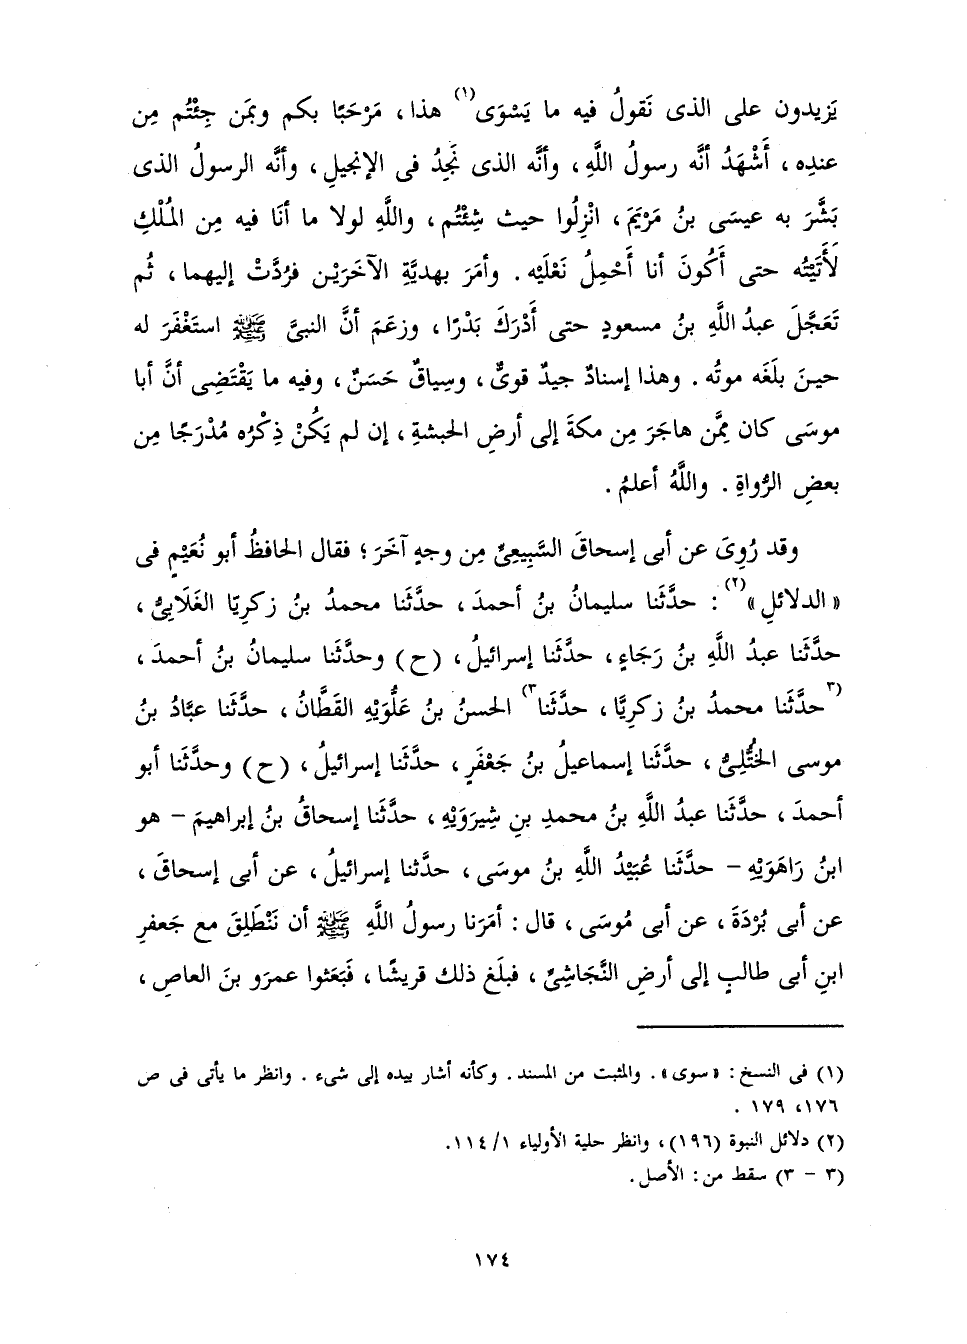 يَزيدون على الذى نَقولُ فيه ما يَسْوَى(١) هذا، مَرْحَبًا بكم وبمَن جِئْتُم مِن
عندِه، أَشْهَدُ أنَّه رسولُ اللَّهِ، وأنَّه الذى نَجِدُ فى الإنجيلِ، وأنَّه الرسولُ الذى
بَشَّرَ به عيسَى بنُ مَرْيَمَ، انْزِلُوا حيث شِئْتُم، واللَّهِ لولا ما أنَا فيه مِن المُلْكِ
لَأَتَيْتُه حتى أَكُونَ أنا أَحْمِلُ نَعْلَيْه. وأمَرَ بهديَّةِ الآخَرَيْن فرُدَّتْ إليهما، ثُم
تَعَجَّلَ عبدُ اللَّهِ بنُ مسعودٍ حتى أَدْرَكَ بَدْرًا، وزعَمَ أنَّ النبىَّ ﷺ استَغْفَرَ له
حينَ بلَغَه موتُه. وهذا إسنادٌ جيدٌ قوىٌّ، وسِياقٌ حَسَنٌ، وفيه ما يَقْتَضِى أنَّ أبا
موسَى كان مِمَّن هاجَرَ مِن مكةَ إلى أرضِ الحبشةِ، إن لم يَكُنْ ذِكْرُه مُدْرَجًا مِن
بعضِ الرُّواةِ. واللَّهُ أعلمُ.
وقد رُوِىَ عن أبى إسحاقَ السَّبِيعِىِّ مِن وجهٍ آخَرَ؛ فقال الحافظُ أبو نُعَيْمٍ فى
«الدلائلِ»(٢): حدَّثَنا سليمانُ بنُ أحمدَ، حدَّثَنا محمدُ بنُ زكرِيّا الغَلَابِىُّ،
حدَّثَنا عبدُ اللَّهِ بنُ رَجَاءٍ، حدَّثَنا إسرائيلُ، (ح) وحدَّثَنا سليمانُ بنُ أحمدَ،
(٣حدَّثَنا محمدُ بنُ زكرِيَّا، حدَّثَنا٣) الحسنُ بنُ عَلُّوَيْهِ القَطَّانُ، حدَّثَنا عبَّادُ بنُ
موسى الخُتُّلِىُّ، حدَّثَنا إسماعيلُ بنُ جَعْفَرٍ، حدَّثَنا إسرائيلُ، (ح) وحدَّثَنا أبو
أحمدَ، حدَّثَنا عبدُ اللَّهِ بنُ محمدِ بنِ شِيرَوَيْهِ، حدَّثَنا إسحاقُ بنُ إبراهيمَ – هو
ابنُ رَاهَوَيْهِ – حدَّثَنا عُبَيْدُ اللَّهِ بنُ موسَى، حدَّثنا إسرائيلُ، عن أبى إسحاقَ،
عن أبى بُرْدَةَ، عن أبى مُوسَى، قال: أمَرَنا رسولُ اللَّهِ ﷺ أن نَنْطَلِقَ مع جَعفرِ
ابنِ أبى طالبٍ إلى أرضِ النَّجَاشِىِّ، فبلَغ ذلك قريشًا، فبَعَثوا عمرَو بنَ العاصِ،
(١) فى النسخ: «سوى». والمثبت من المسند. وكأنه أشار بيده إلى شىء. وانظر ما يأتى فى ص
١٧٦، ١٧٩.
(٢) دلائل النبوة (١٩٦)، وانظر حلية الأولياء ١/ ١١٤.
(٣ – ٣) سقط من: الأصل.
١٧٤